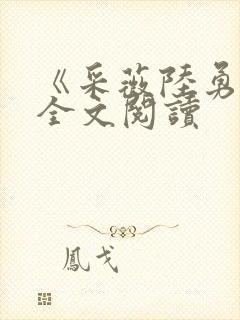 《采薇陸勇
全文閱讀
鳳戈